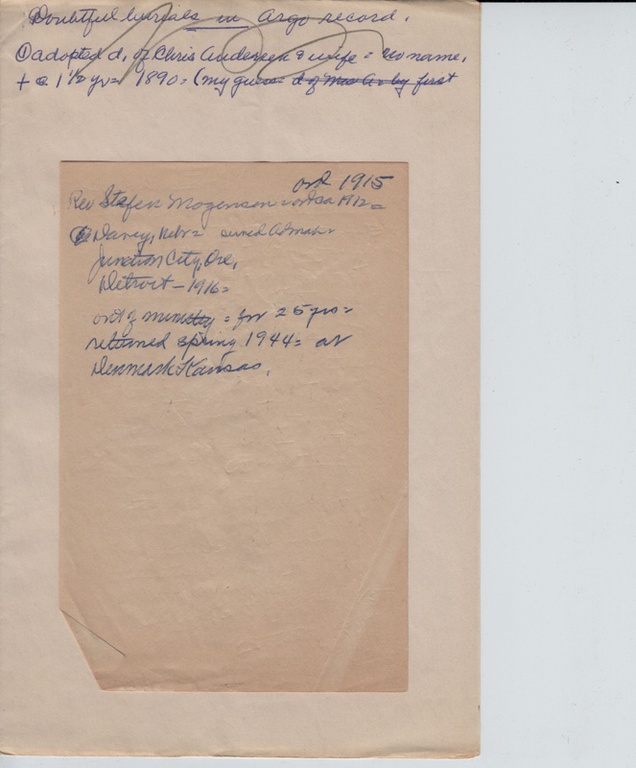 Doubtful burials in Argo record.
① adopted d. of Chris Andersen & wife = no name,
+ @ 1½ yr = 1890 = (my guess d of Mrs A. by first
ord 1915
Rev Stefen Mogensen = ord ca 1912 =
Davey, Nebr = served
Junction City, Ore,
Detroit - 1916 =
out of ministry = for 25 yrs =
returned spring 1944 = at
Denmark Kansas.